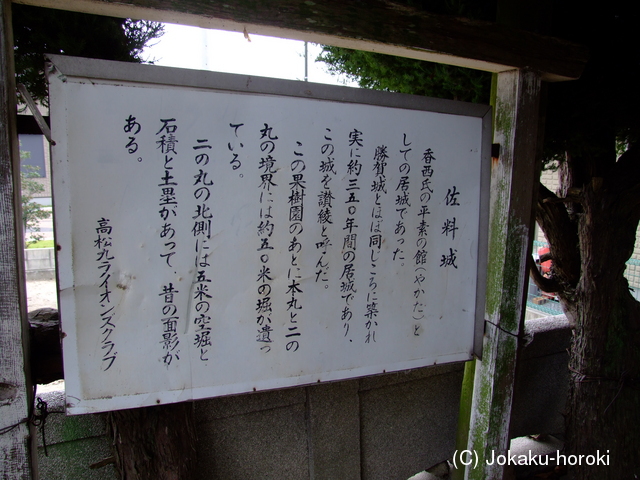 佐料城
香西氏の平素の館(やかた)と
しての居城であった。
勝賀城とほぼ同じころに築かれ
実に約三五〇年間の居城であり、
この城を讃綾と呼んだ。
この果樹園のあとに本丸と二の
丸の境界には約五〇米の堀が遺っ
ている。
二の丸の北側には五米の空堀と
石積と土塁があって、昔の面影が
ある。
高松九ライオンズクラブ
(C) Jokaku-horoki